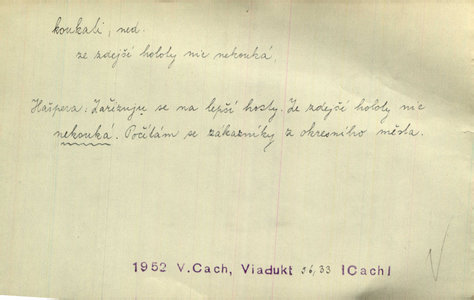 koukali, ned.
ze zdejší holoty nic nekouká,
Hašpera: Zařizuju se na lepší hosty. Ze zdejší holoty nic
nekouká. Počítám se zákazníky z okresního města.
1952 V.Cach, Viadukt 26, 33 [Cach]